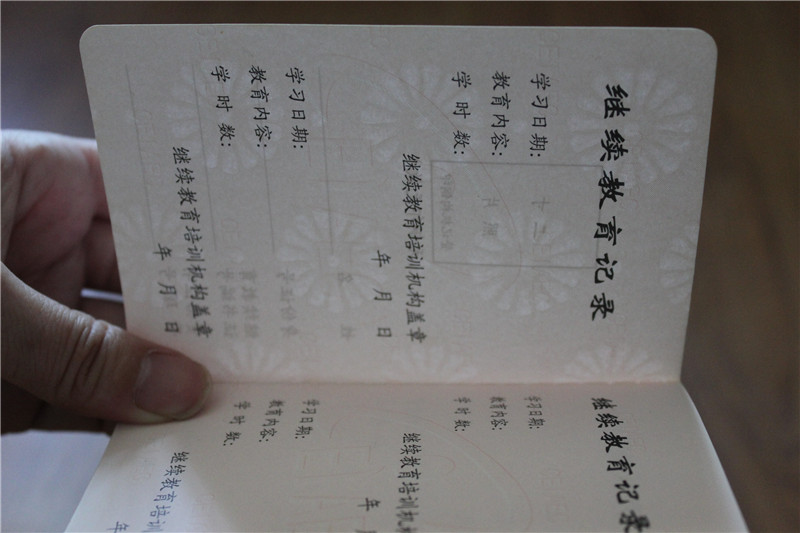 继续教育记录
学习日期：
教育内容：
学 时 数：
继续教育培训机构盖章
年 月 日
学习日期：
教育内容：
学 时 数：
继续教育培训机构盖章
年 月 日
继续教育记录
学习日期：
教育内容：
学 时 数：
继续教育培训机构
年 月
学习日期：
教育内容：
学 时 数：
继续教育培训
年